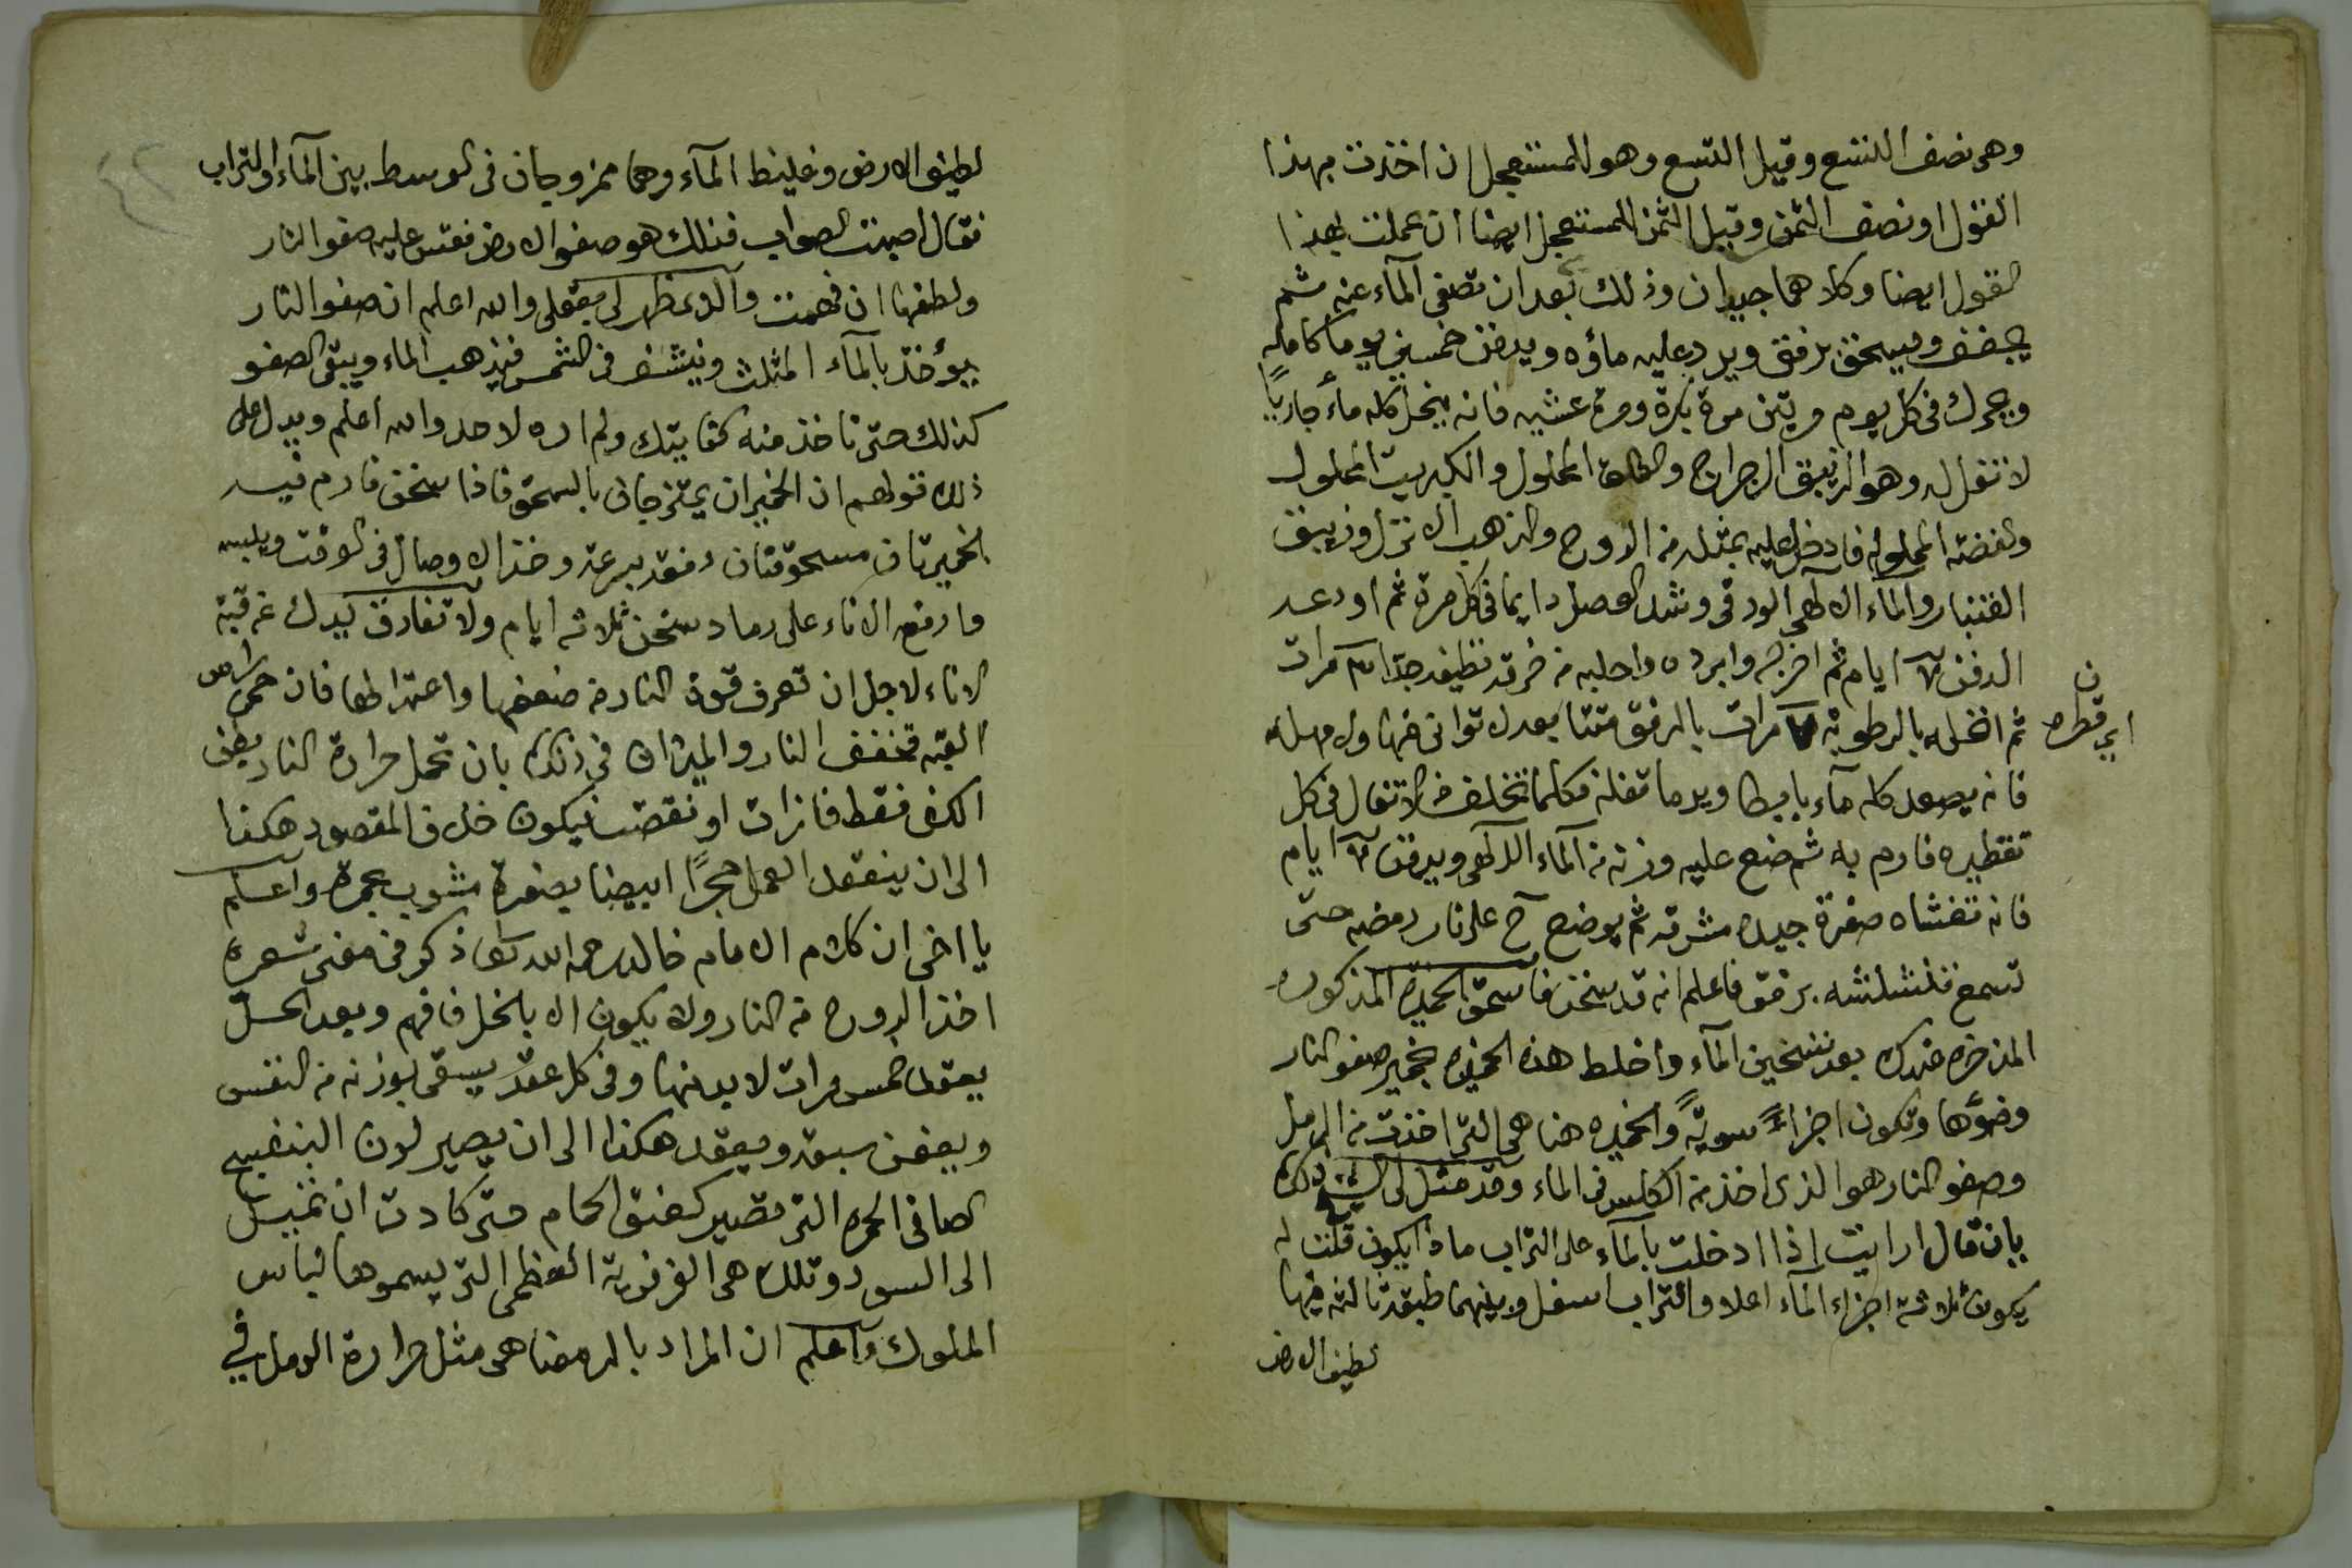 وهى نصف التسع وقيل التسع وهو للمستعجل ان اخذت بهذا
القول او نصف الثمن وقيل الثمن للمستعجل ايضا ان عملت بهذا
القول ايضا وكلاهما جيدان وذلك بعد ان تصفى المآء عنه ثم
يجفف ويسحق برفق ويرد عليه ماؤه ويدفن خمسين يوما كامله
ويحرك فى كل يوم مرتين مرة بكرة ومرة عشيه فانه ينحل كله مأ جاريًا
لا تفل له وهو الزيبق الرجراج والطلق المحلول والكبريت المحلول
والفضه المحلوله فادخل عليه بمثله من الروح والذهب الانزل وزيبق
الغنبار والماء الالهى الورقى وشد الوصل دايما فى كل مرة ثم اودعه
الدفن ٧ ايام ثم اخرجه وابرده واحلبه من خرقه نظيفه جدا ٣ مرات
ثم انخله بالرطوبة ٧ مرات بالرفق متتابعه لا توانى فيها ولا مهله
اى قطره
ن
فانه يصعد كله مآء بابيطا ويرما تفله فكلما تخلف من الاتفال فى كل
تقطيره فارم به ثم ضع عليه وزنه من المآء الالهى ويدفن ٧ ايام
فانه تغشاه صفرة جيده مشرقه ثم يوضع ح على نار رمضه حتى
تسمع فنشلشه برفق فاعلم انه قد سخن فاسحق الخميرة المذكوره
المدخره عندك بعد تسخين المآء واخلط هذه الخميره بخمير صفو النار
وضوّها وتكون اجزاءً سويّةً والخميره هنا هى التى اخذت من الرمل
وصفو النار هو الذى اخذ من الكلس فى الماء وقد مثل لى الشيخ ذلك
بان قال ارايت اذا ادخلت بالمآء على التراب ماذا يكون قلت له
يكون ثلاثة اجزاء المآء اعلا والتراب اسفل وبينهما طبقة ثالثه فيها
لطيف الارض
لطيف الارض وغليظ المآء وهما ممزوجان فى الوسط بين المآء والتراب
فقال اصبت الصواب فذلك هو صفو الارض فقس عليه صفو النار
ولطفها ان فهمت والذى ظهر لى بعقلى والله اعلم ان صفو النار
يؤخذ بالمآء المثلث وينشف فى الشمس فيذهب الماء ويبقى الصفو
كذلك حتى تاخذ منه كفايتك ولم اره لاحد والله اعلم ويدل على
ذلك قولهم ان الخميران يمتزجان بالسحق فاذا سخن فارم فيه
الخميرتان مسحوقتان دفعة بسرعة وخذ الاوصال فى الوقت ويلبسه
وارفع الاناء على رماد سخن ثلاثه ايام ولا تفارق يدك عن قبة
الاناء لاجل ان تعرف قوة النار من ضعفها واعتدالها فان حمى راس
القبه فخفف النار والميزان فى ذلك بان تحمل حرارة النار بطن
الكف فقط فان زادت او نقصت فيكون خلاف المقصود هكذا
الى ان ينعقد العمل حجرًا ابيضا بصفرة مشوب بحمرة واعلم
يا اخى ان كلام الامام خالد رحمه الله تعا ذكر فى معنى شعره
اخذ الروح من النار ولا يكون الا بالخل فافهم وبعد الحل
يعقد خمس مرات لا بد منها وفى كل عقد يسقى بوزنه من النفس
ويعفن سبعة ويعقد هكذا الى ان يصير لون البنفسج
الصافى الحمره التى تصير كعنق الحمام حتى كادت ان تميل
الى السود وتلك هى الفرفرية العظمى التى يسموها لباس
الملوك واعلم ان المراد بالرمضا هى مثل حرارة الرمل فى
٤٢